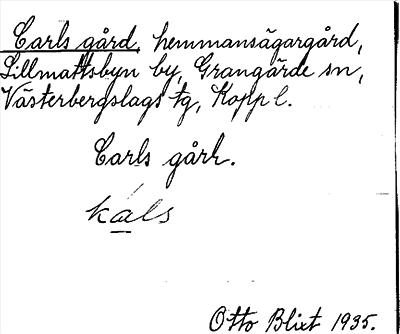 Carls gård, hemmansägargård,
Lillmattsbyn by, Grangärde sn,
Västerbergslags tg, Kopp l.
Carls gårk.
kals
Otto Blixt 1935.